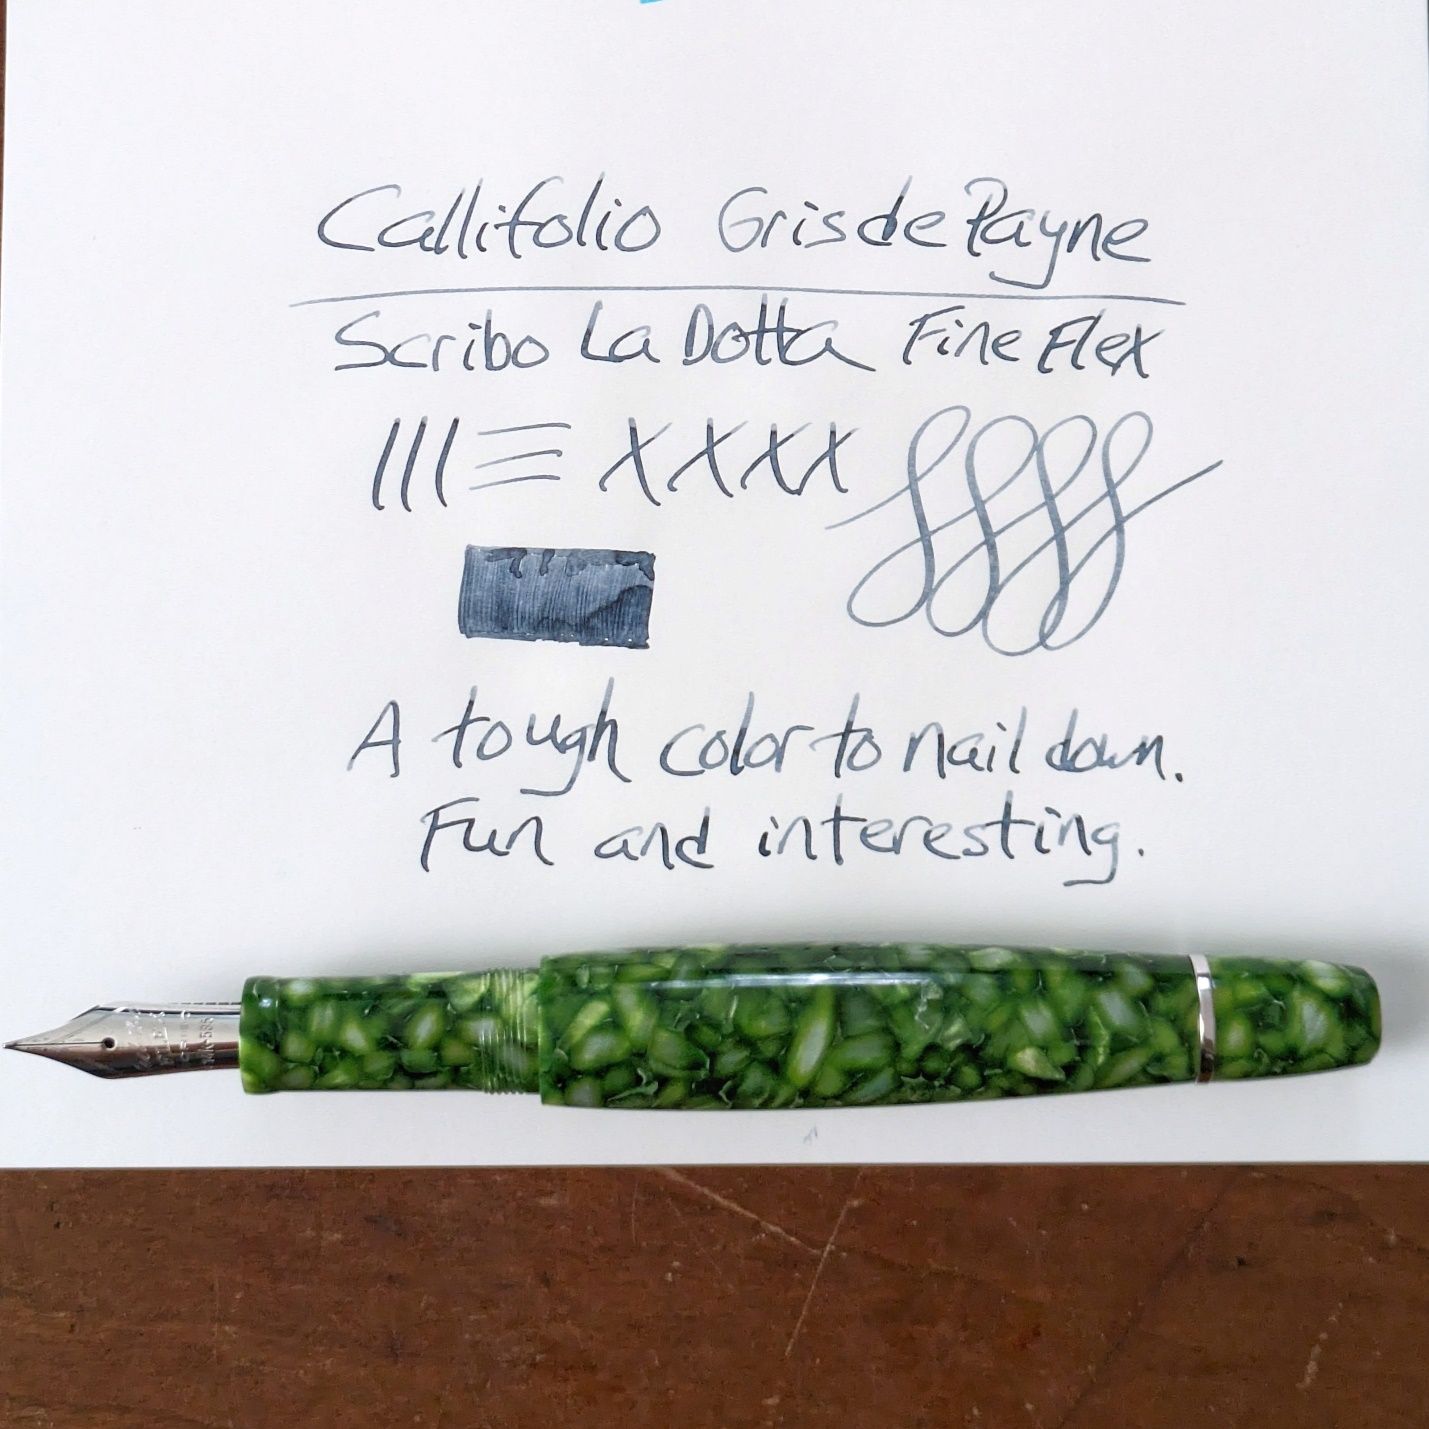 Callifolio Gris de Payne
Scribo La Dotta Fine Flex
XXXX
A tough color to nail down.
Fun and interesting.
585